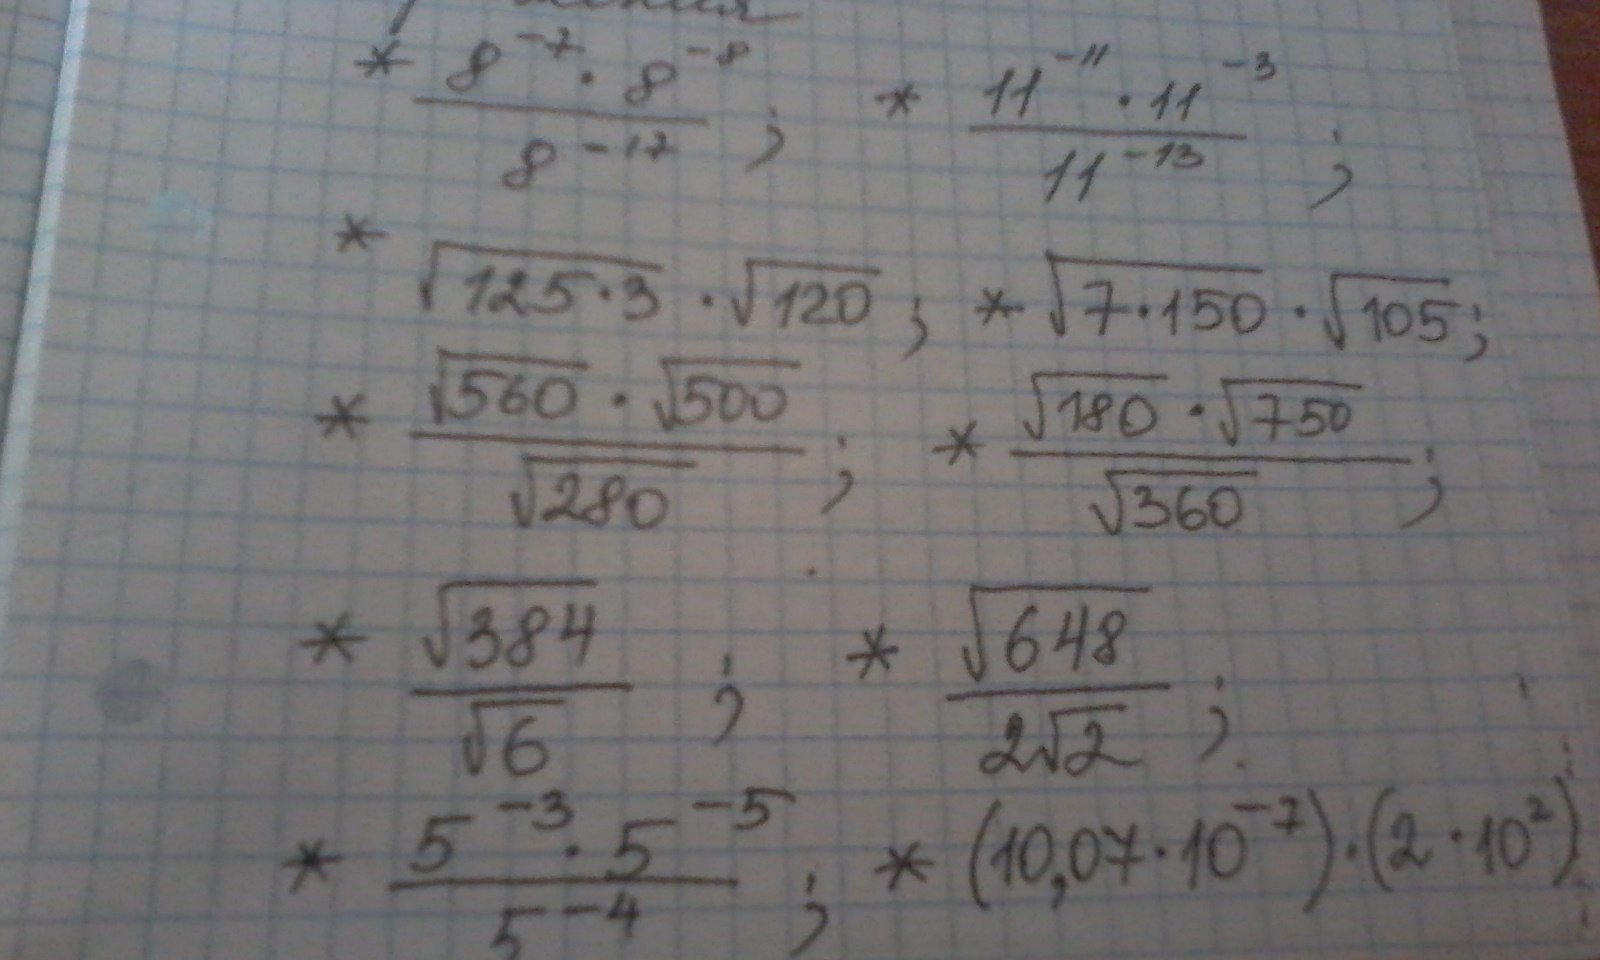 * (8^-7 · 8^-8) / 8^-17 ; * (11^-11 · 11^-3) / 11^-13 ;
* √(125·3) · √120 ; * √(7·150) · √105 ;
* (√560 · √500) / √280 ; * (√180 · √750) / √360 ;
* √384 / √6 ; * √648 / (2√2) ;
* (5^-3 · 5^-5) / 5^-4 ; * (10,07·10^-7)·(2·10^2)